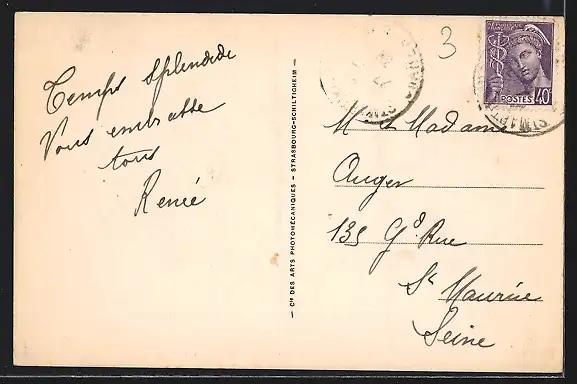 Temps splendide
Vous embrasse
tous
Renée
— Cie DES ARTS PHOTOMÉCANIQUES - STRASBOURG-SCHILTIGHEIM —
3
RÉPUBLIQUE FRANÇAISE
POSTES 40c
M & Madame
Auger
135 Gde Rue
St Maurice
Seine